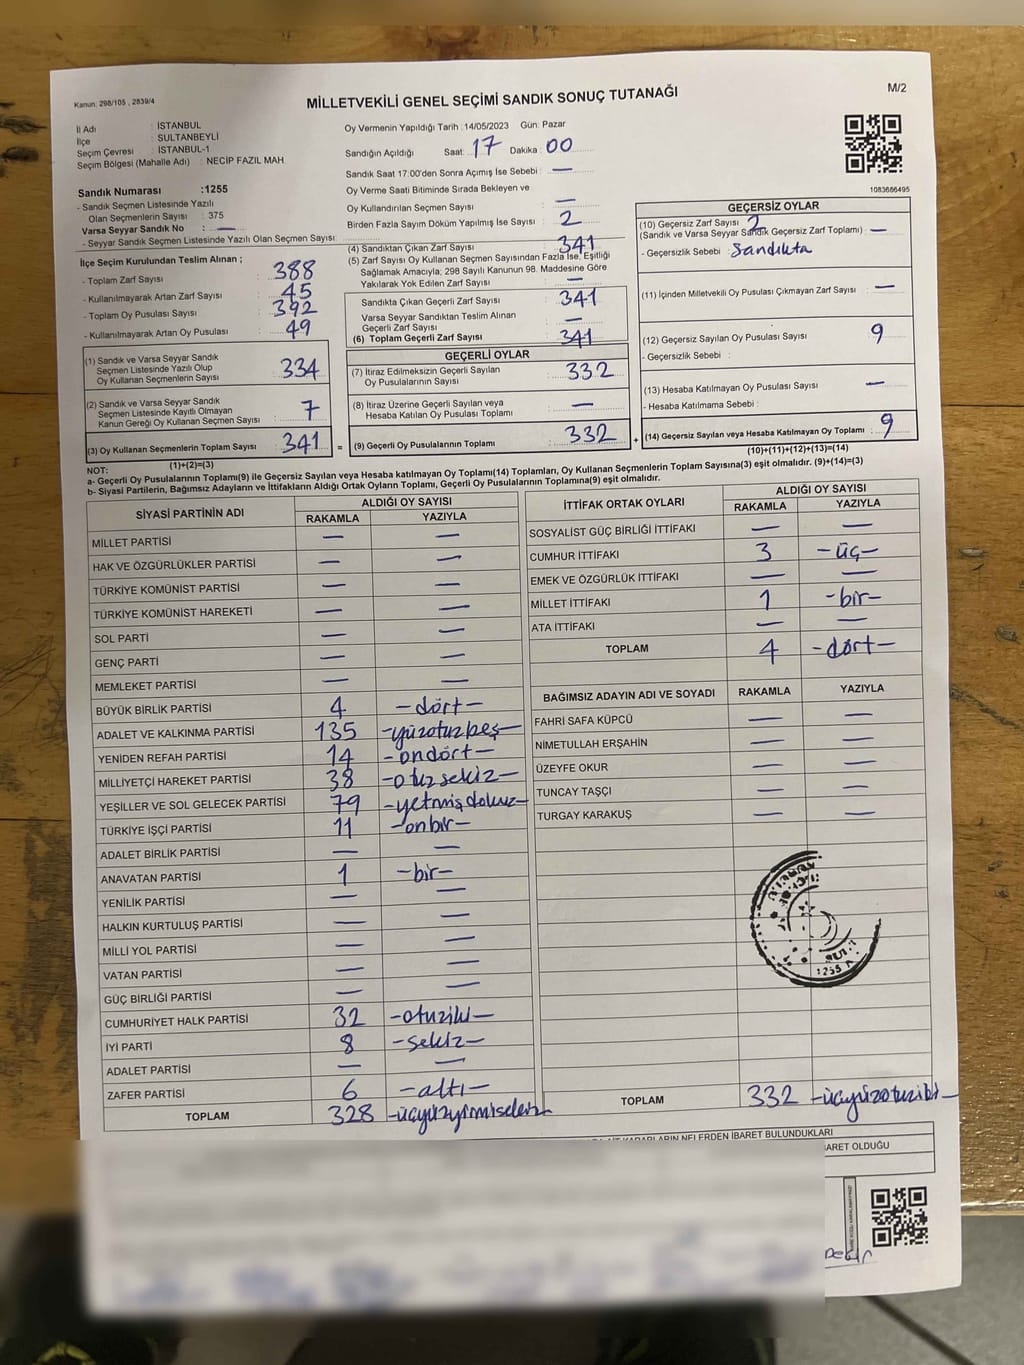 Kanun: 298/105 , 2839/4
MİLLETVEKİLİ GENEL SEÇİMİ SANDIK SONUÇ TUTANAĞI
M/2
İl Adı : İSTANBUL
İlçe : SULTANBEYLİ
Seçim Çevresi : İSTANBUL-1
Seçim Bölgesi (Mahalle Adı) : NECİP FAZIL MAH
Sandık Numarası :1255
- Sandık Seçmen Listesinde Yazılı
Olan Seçmenlerin Sayısı : 375
Varsa Seyyar Sandık No : —
- Seyyar Sandık Seçmen Listesinde Yazılı Olan Seçmen Sayısı:
İlçe Seçim Kurulundan Teslim Alınan ;
- Toplam Zarf Sayısı : 388
- Kullanılmayarak Artan Zarf Sayısı : 45
- Toplam Oy Pusulası Sayısı : 392
- Kullanılmayarak Artan Oy Pusulası : 49
(1) Sandık ve Varsa Seyyar Sandık
Seçmen Listesinde Yazılı Olup
Oy Kullanan Seçmenlerin Sayısı : 334
(2) Sandık ve Varsa Seyyar Sandık
Seçmen Listesinde Kayıtlı Olmayan
Kanun Gereği Oy Kullanan Seçmen Sayısı : 7
(3) Oy Kullanan Seçmenlerin Toplam Sayısı : 341 =
(1)+(2)=(3)
Oy Vermenin Yapıldığı Tarih :14/05/2023 Gün: Pazar
Sandığın Açıldığı Saat: 17 Dakika: 00
Sandık Saat 17:00'den Sonra Açımış İse Sebebi : —
Oy Verme Saati Bitiminde Sırada Bekleyen ve
Oy Kullandırılan Seçmen Sayısı : —
Birden Fazla Sayım Döküm Yapılmış İse Sayısı : 2
(4) Sandıktan Çıkan Zarf Sayısı : 341
(5) Zarf Sayısı Oy Kullanan Seçmen Sayısından Fazla İse, Eşitliği
Sağlamak Amacıyla; 298 Sayılı Kanunun 98. Maddesine Göre
Yakılarak Yok Edilen Zarf Sayısı : —
Sandıkta Çıkan Geçerli Zarf Sayısı : 341
Varsa Seyyar Sandıktan Teslim Alınan
Geçerli Zarf Sayısı : —
(6) Toplam Geçerli Zarf Sayısı : 341
GEÇERLİ OYLAR
(7) İtiraz Edilmeksizin Geçerli Sayılan
Oy Pusulalarının Sayısı : 332
(8) İtiraz Üzerine Geçerli Sayılan veya
Hesaba Katılan Oy Pusulası Toplamı : —
(9) Geçerli Oy Pusulalarının Toplamı : 332 +
1083686495
GEÇERSİZ OYLAR
(10) Geçersiz Zarf Sayısı 2
(Sandık ve Varsa Seyyar Sandık Geçersiz Zarf Toplamı) : —
- Geçersizlik Sebebi : Sandıkta
(11) İçinden Milletvekili Oy Pusulası Çıkmayan Zarf Sayısı : —
(12) Geçersiz Sayılan Oy Pusulası Sayısı : 9
- Geçersizlik Sebebi :
(13) Hesaba Katılmayan Oy Pusulası Sayısı : —
- Hesaba Katılmama Sebebi :
(14) Geçersiz Sayılan veya Hesaba Katılmayan Oy Toplamı : 9
(10)+(11)+(12)+(13)=(14)
NOT:
a- Geçerli Oy Pusulalarının Toplamı(9) ile Geçersiz Sayılan veya Hesaba katılmayan Oy Toplamı(14) Toplamları, Oy Kullanan Seçmenlerin Toplam Sayısına(3) eşit olmalıdır. (9)+(14)=(3)
b- Siyasi Partilerin, Bağımsız Adayların ve İttifakların Aldığı Ortak Oyların Toplamı, Geçerli Oy Pusulalarının Toplamına(9) eşit olmalıdır.
SİYASİ PARTİNİN ADI ALDIĞI OY SAYISI
RAKAMLA YAZIYLA
MİLLET PARTİSİ — —
HAK VE ÖZGÜRLÜKLER PARTİSİ — —
TÜRKİYE KOMÜNİST PARTİSİ — —
TÜRKİYE KOMÜNİST HAREKETİ — —
SOL PARTİ — —
GENÇ PARTİ — —
MEMLEKET PARTİSİ — —
BÜYÜK BİRLİK PARTİSİ 4 —dört—
ADALET VE KALKINMA PARTİSİ 135 —yüzotuzbeş—
YENİDEN REFAH PARTİSİ 14 —ondört—
MİLLİYETÇİ HAREKET PARTİSİ 38 —otuzsekiz—
YEŞİLLER VE SOL GELECEK PARTİSİ 79 —yetmişdokuz—
TÜRKİYE İŞÇİ PARTİSİ 11 —onbir—
ADALET BİRLİK PARTİSİ — —
ANAVATAN PARTİSİ 1 —bir—
YENİLİK PARTİSİ — —
HALKIN KURTULUŞ PARTİSİ — —
MİLLİ YOL PARTİSİ — —
VATAN PARTİSİ — —
GÜÇ BİRLİĞİ PARTİSİ — —
CUMHURİYET HALK PARTİSİ 32 —otuziki—
İYİ PARTİ 8 —sekiz—
ADALET PARTİSİ — —
ZAFER PARTİSİ 6 —altı—
TOPLAM 328 —üçyüzyirmisekiz—
İTTİFAK ORTAK OYLARI ALDIĞI OY SAYISI
RAKAMLA YAZIYLA
SOSYALİST GÜÇ BİRLİĞİ İTTİFAKI — —
CUMHUR İTTİFAKI 3 —üç—
EMEK VE ÖZGÜRLÜK İTTİFAKI — —
MİLLET İTTİFAKI 1 —bir—
ATA İTTİFAKI — —
TOPLAM 4 —dört—
BAĞIMSIZ ADAYIN ADI VE SOYADI RAKAMLA YAZIYLA
FAHRİ SAFA KÜPCÜ — —
NİMETULLAH ERŞAHİN — —
ÜZEYFE OKUR — —
TUNCAY TAŞÇI — —
TURGAY KARAKUŞ — —
1255
TOPLAM 332 —üçyüzotuziki—
KARARLARIN NELERDEN İBARET BULUNDUKLARI
BARET OLDUĞU